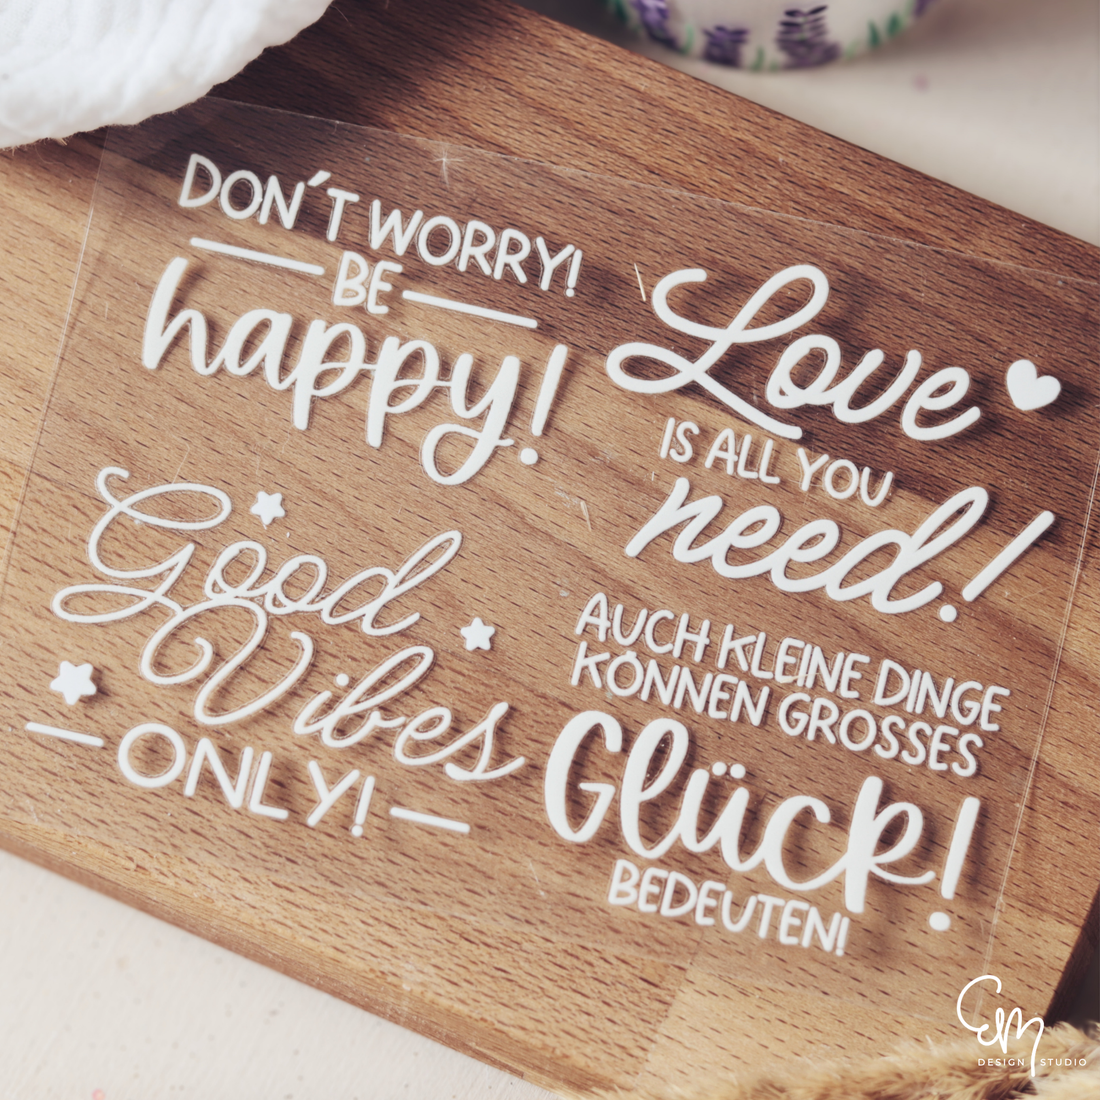 DON´T WORRY!
BE
happy!
Love
IS ALL YOU
need!
Good
Vibes
ONLY!
AUCH KLEINE DINGE
KÖNNEN GROSSES
Glück!
BEDEUTEN!
EM
DESIGN STUDIO